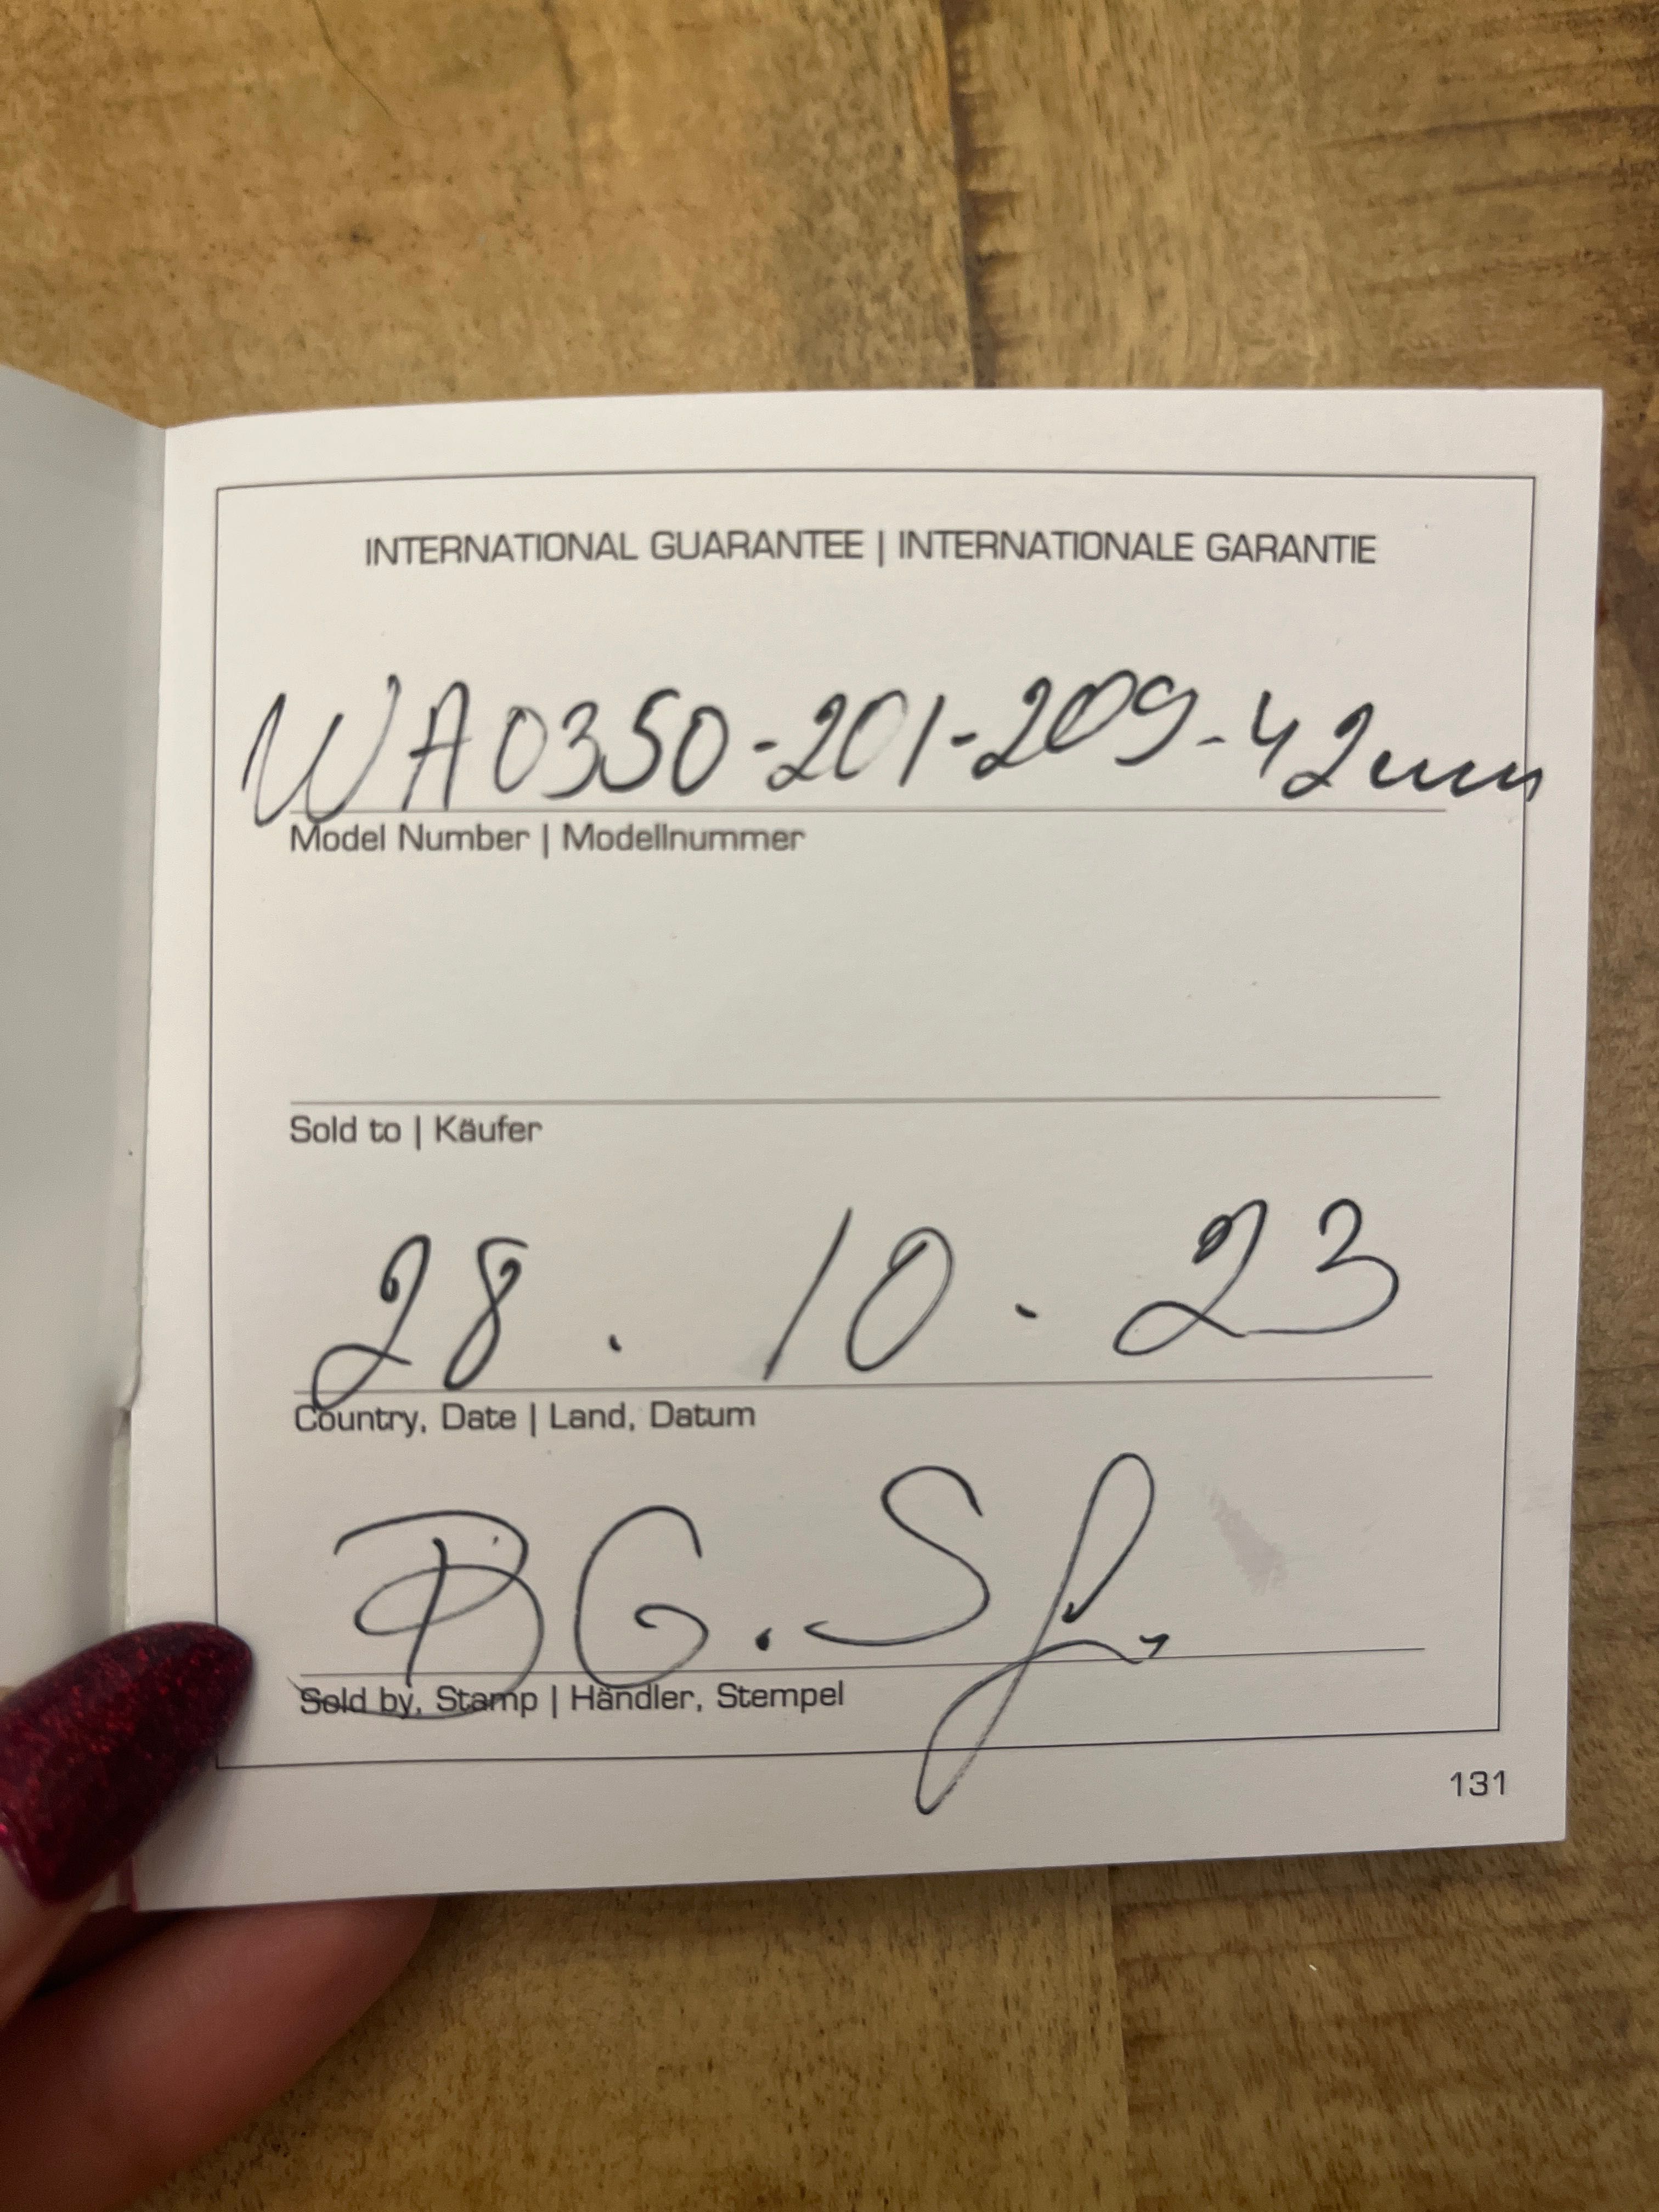 INTERNATIONAL GUARANTEE | INTERNATIONALE GARANTIE
WA0350-201-209-42mm
Model Number | Modellnummer
Sold to | Käufer
28. 10. 23
Country, Date | Land, Datum
BG. Sf.
Sold by, Stamp | Händler, Stempel
131